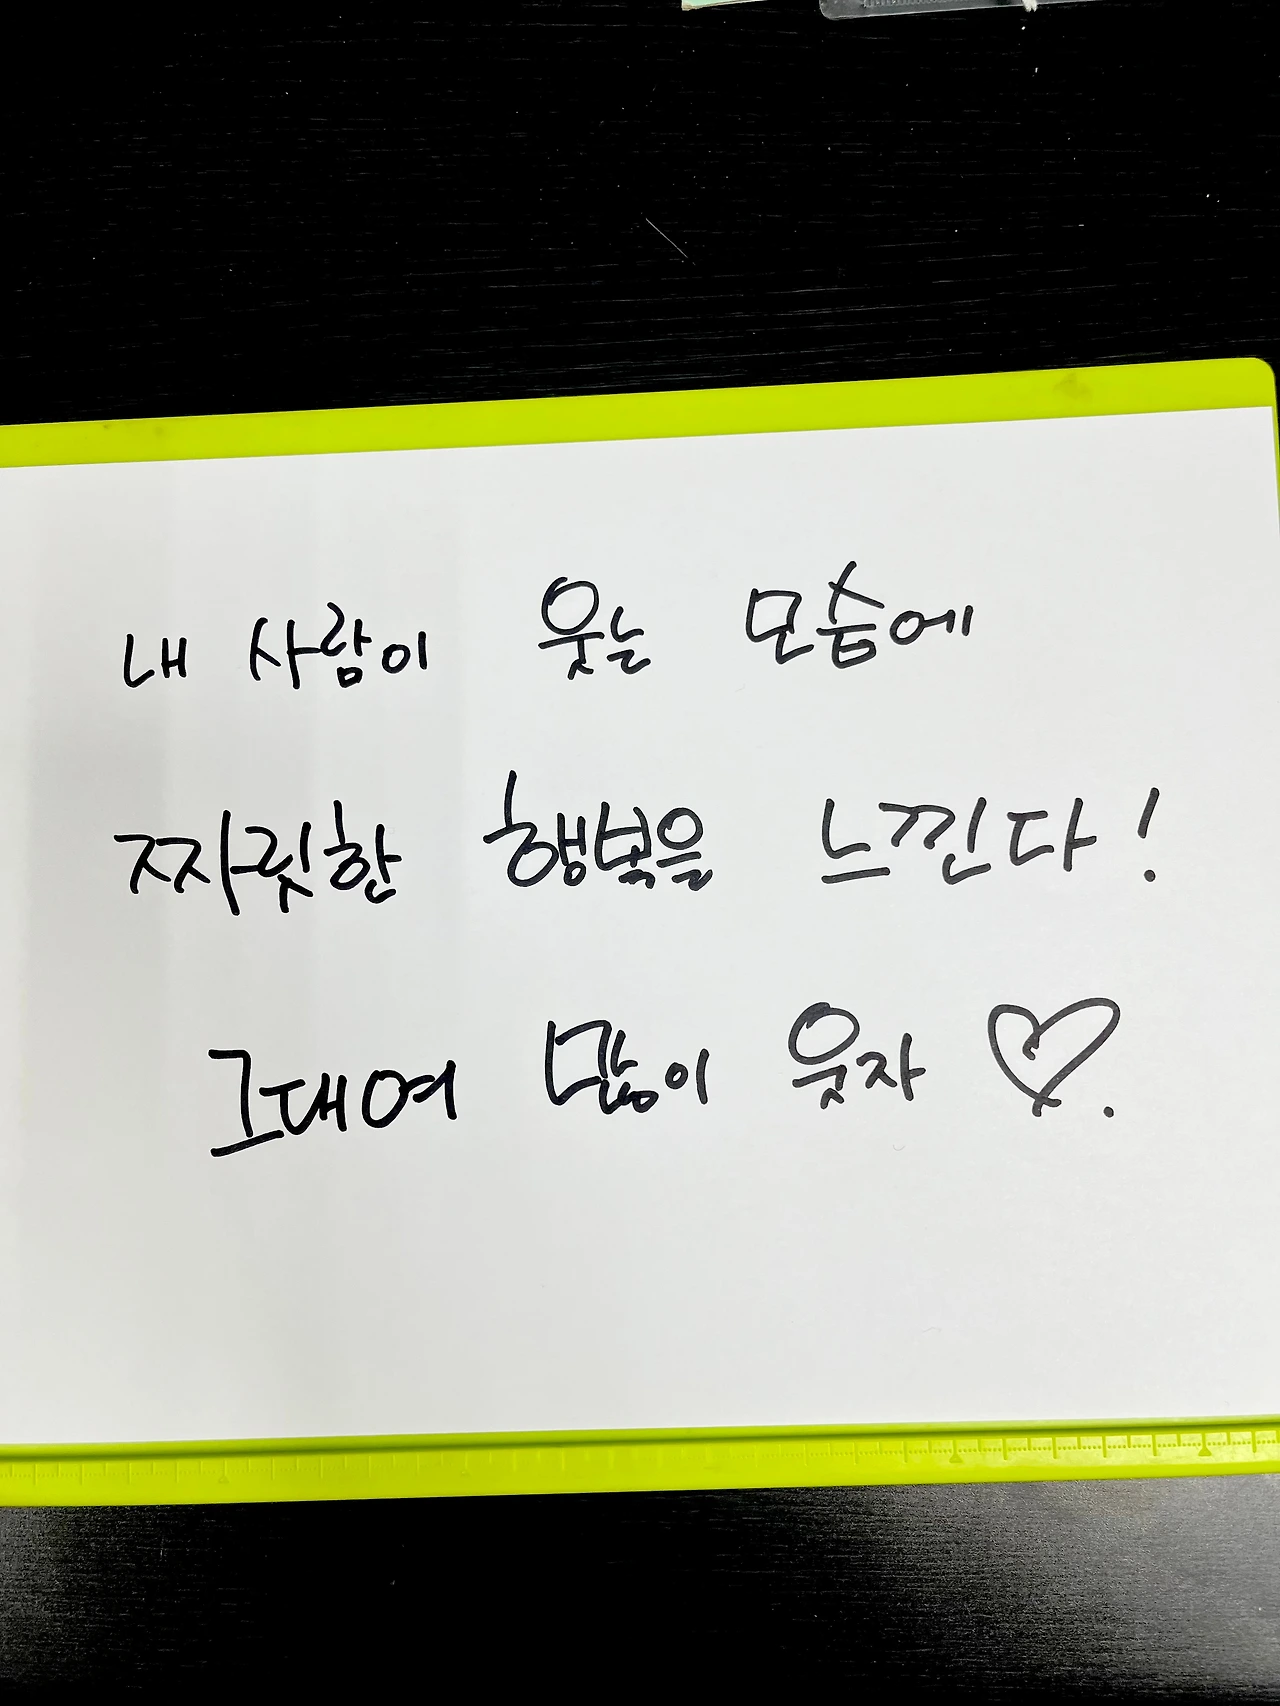 내 사람이 웃는 모습에
짜릿한 행복을 느낀다!
그대여 많이 웃자♡.